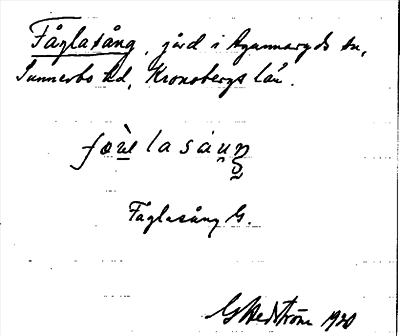 Fåglasång, jord i Agunnaryds sn,
Sunnerbo hd, Kronobergs län.
Fåglasång G.
G Hedström 1920